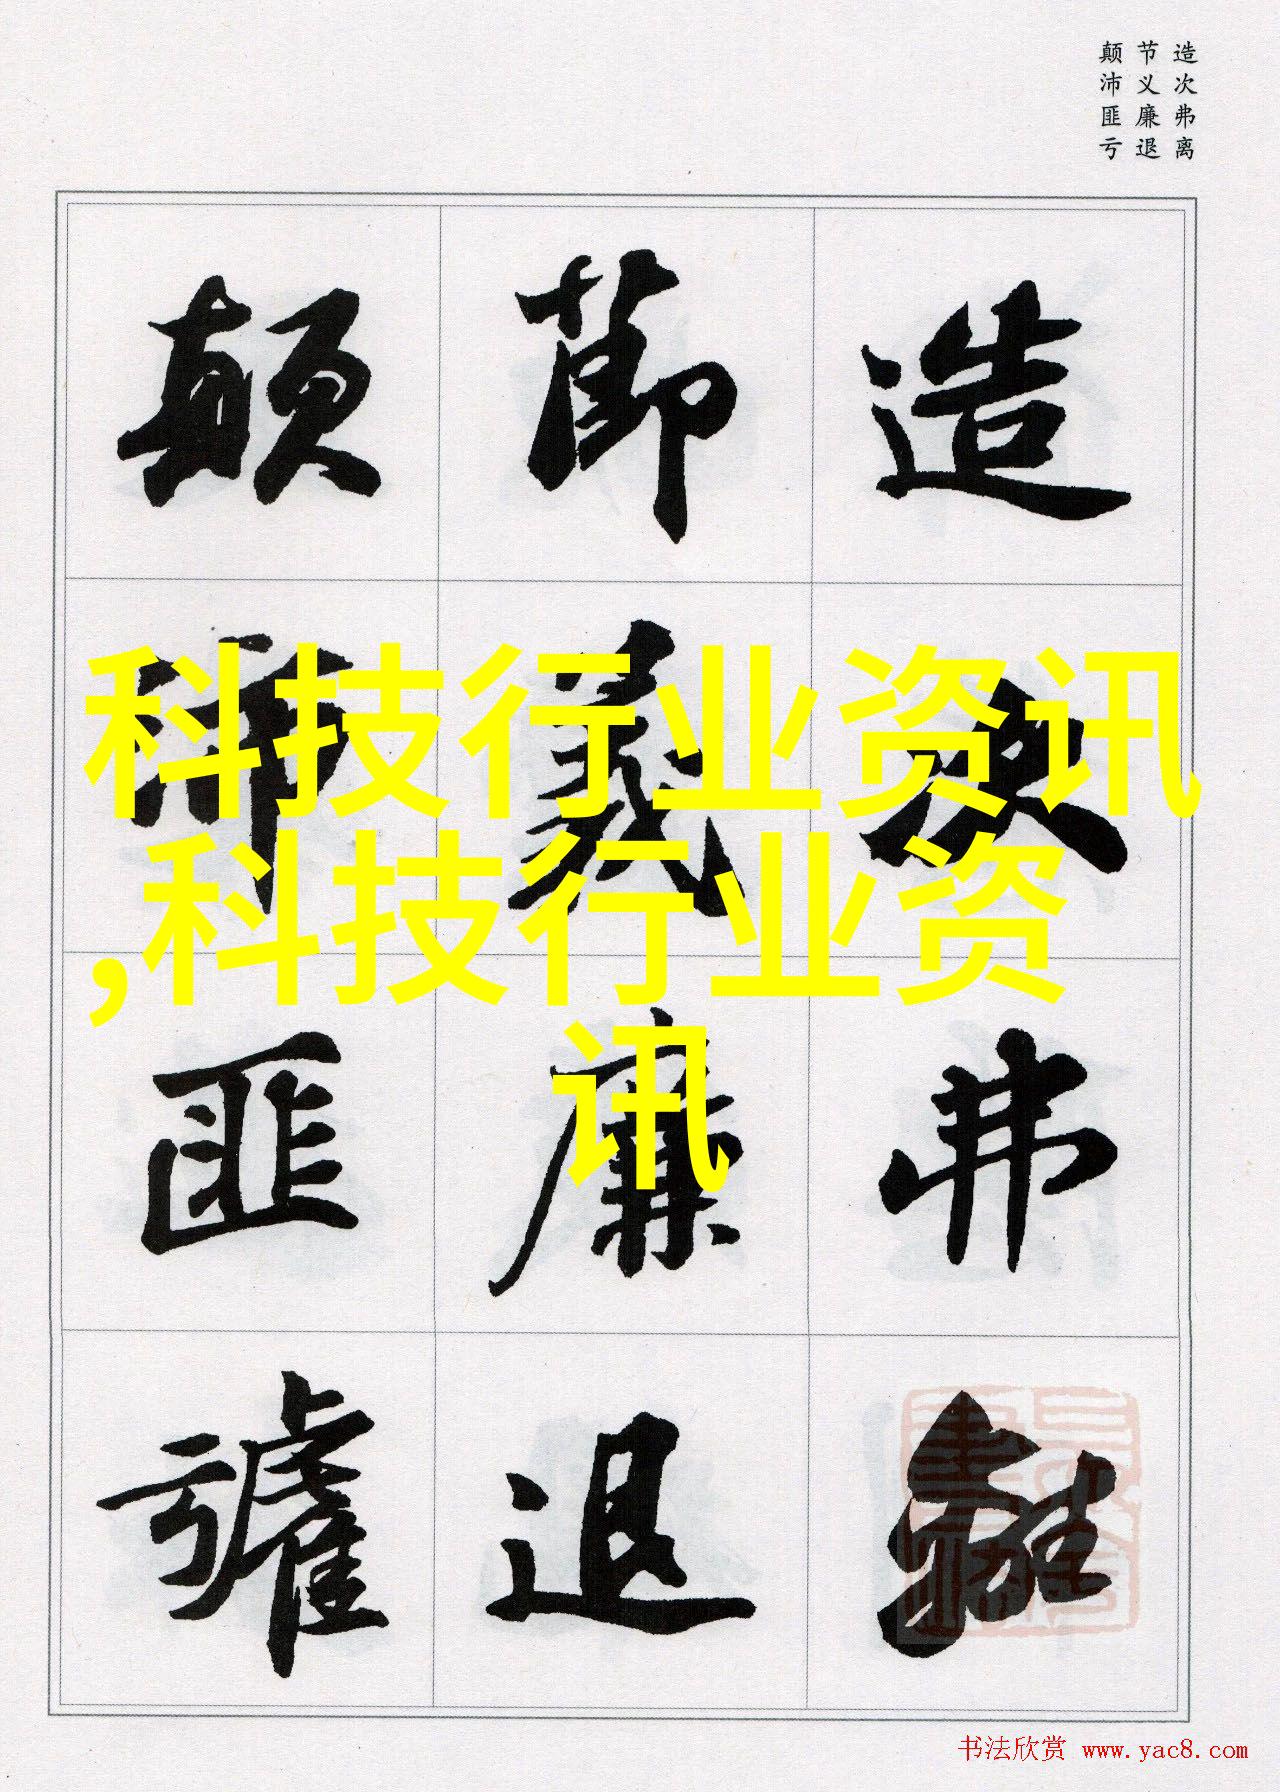 造次弗离
节义廉退
颠沛匪亏
造次弗離
節義廉退
顛沛匪虧
科技行业资讯
,科技行业资
讯
书法欣赏 www.yac8.com